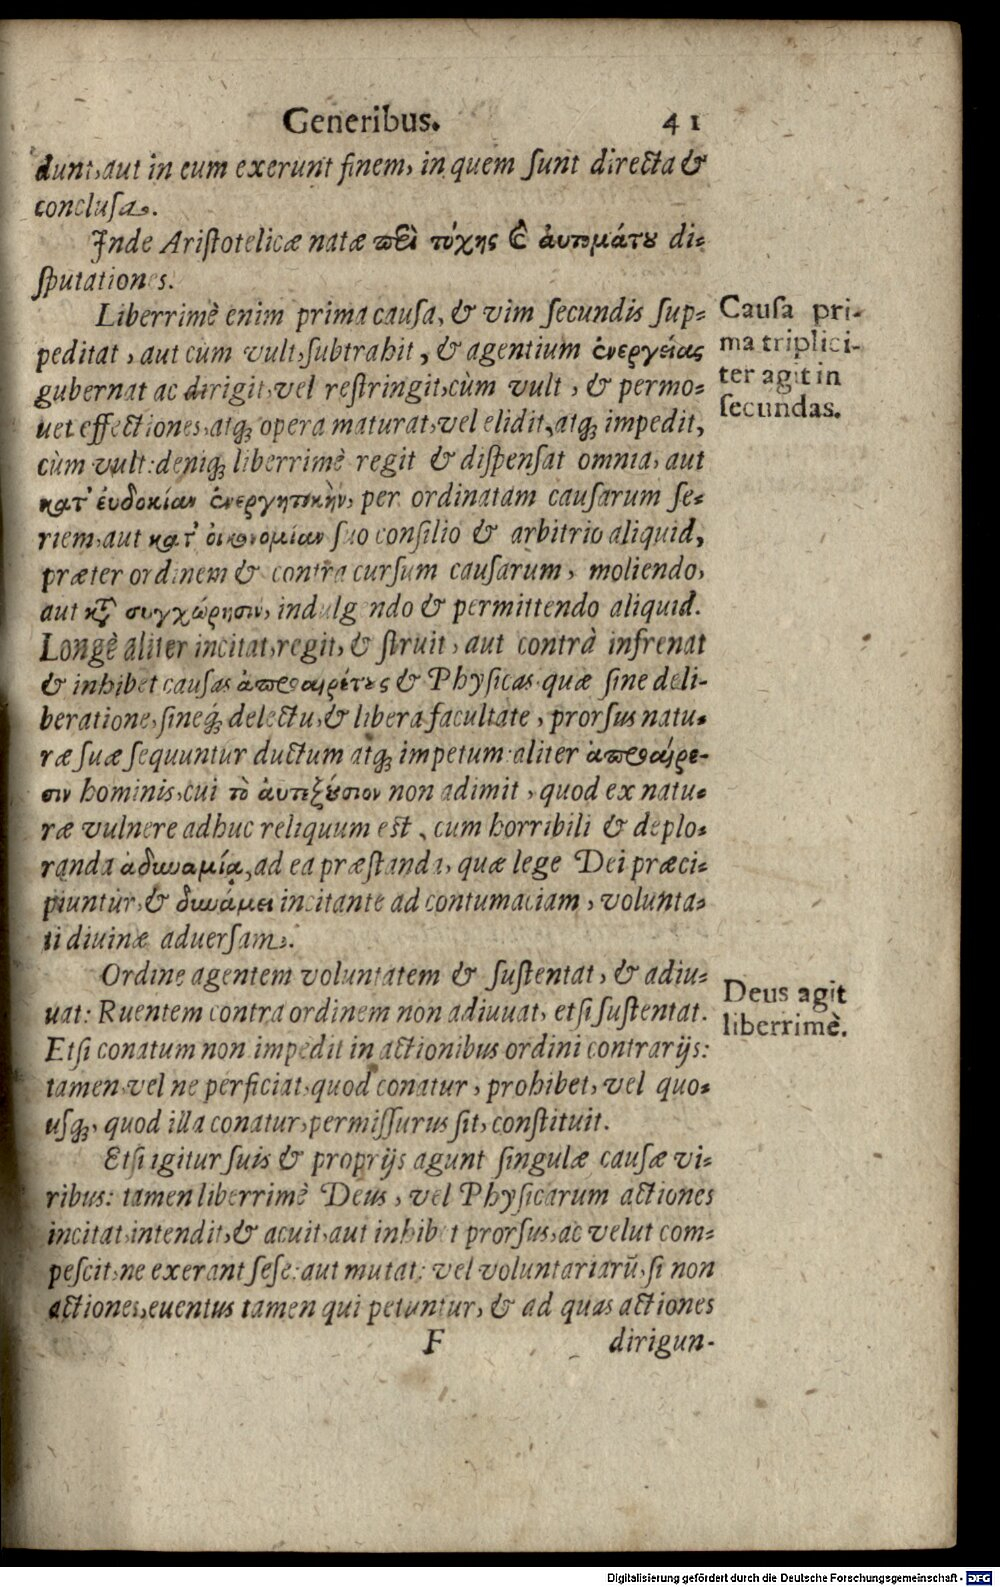 Generibus. 41
dunt, aut in eum exerunt finem, in quem ſunt directa &
concluſa.
Inde Ariſtotelicæ natæ περὶ τύχης καὶ ἀυτομάτου di-
ſputationes.
Liberrimè enim prima cauſa, & vim ſecundis ſup-
peditat, aut cùm vult, ſubtrahit, & agentium ἐνεργείας
gubernat ac dirigit, vel reſtringit, cùm vult, & permo-
uet effectiones, atq; opera maturat, vel elidit, atq; impedit,
cùm vult: deniq; liberrimè regit & diſpenſat omnia, aut
κατ' ἐυδοκίαν ἐνεργητικὴν, per ordinatam cauſarum ſe-
riem, aut κατ' οἰκονομίαν ſuo conſilio & arbitrio aliquid,
præter ordinem & contra curſum cauſarum, moliendo,
aut κατὰ συγχώρησιν, indulgendo & permittendo aliquid.
Longè aliter incitat, regit, & ſtruit, aut contrà infrenat
& inhibet cauſas ἀπροαιρέτους & Phyſicas quæ ſine deli-
beratione, ſineq; delectu, & libera facultate, prorſus natu-
ræ ſuæ ſequuntur ductum atq; impetum: aliter ἀπροαίρε-
σιν hominis, cui τὸ ἀυτεξούσιον non adimit, quod ex natu-
ræ vulnere adhuc reliquum est, cum horribili & deplo-
randa ἀδυναμίᾳ, ad ea præſtanda, quæ lege Dei præci-
piuntur, & δυνάμει incitante ad contumaciam, volunta-
ti diuinæ aduerſam.
Ordine agentem voluntatem & ſuſtentat, & adiu-
uat: Ruentem contra ordinem non adiuuat, etſi ſuſtentat.
Etſi conatum non impedit in actionibus ordini contrarijs:
tamen, vel ne perficiat, quod conatur, prohibet, vel quo-
uſq;, quod illa conatur, permiſſurus ſit, conſtituit.
Etſi igitur ſuis & proprijs agunt ſingulæ cauſæ vi-
ribus: tamen liberrimè Deus, vel Phyſicarum actiones
incitat, intendit, & acuit, aut inhibet prorſus, ac velut com-
peſcit, ne exerant ſeſe: aut mutat: vel voluntariarũ, ſi non
actiones, euentus tamen qui petuntur, & ad quas actiones
F dirigun-
Cauſa pri-
ma triplici-
ter agit in
ſecundas.
Deus agit
liberrimè.
Digitalisierung gefördert durch die Deutsche Forschungsgemeinschaft - DFG